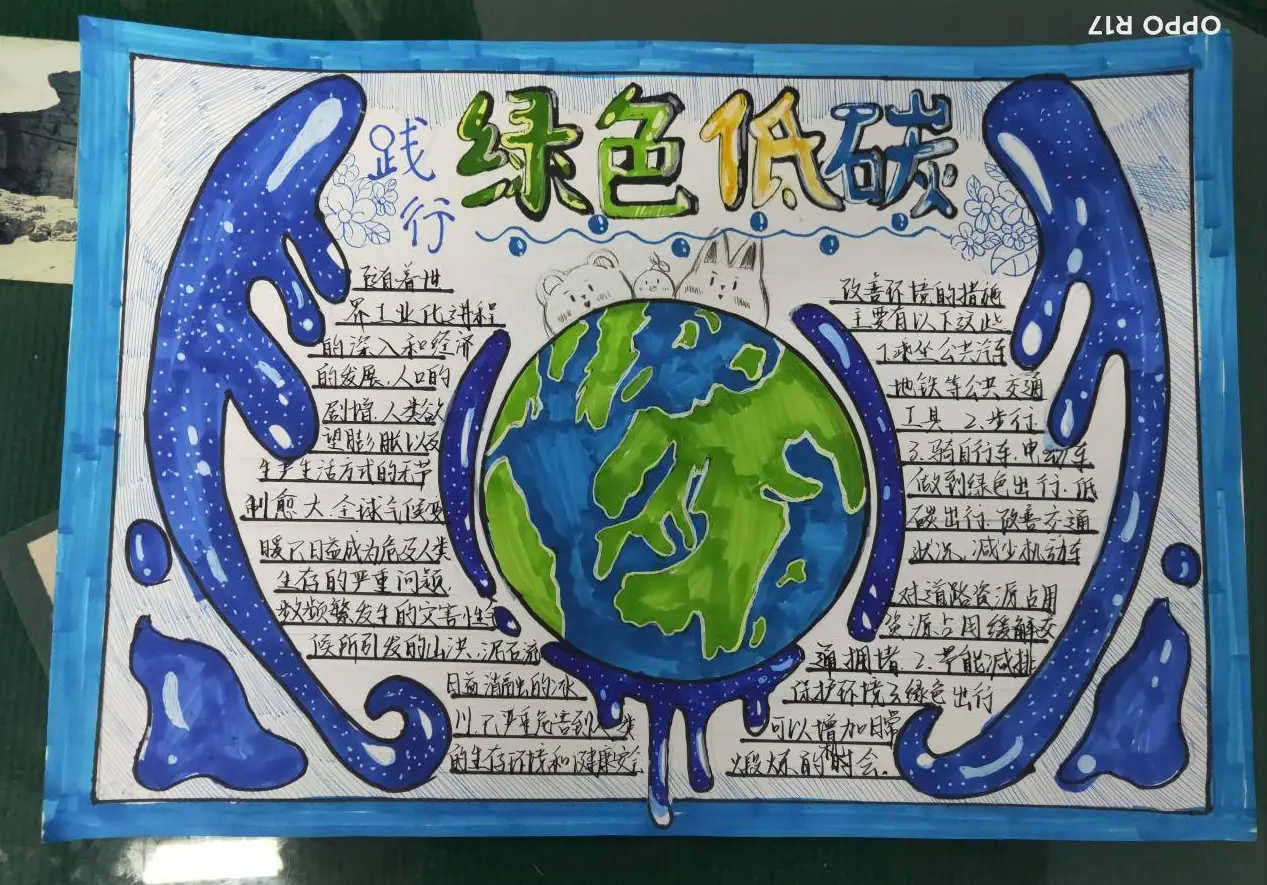 OPPO R17
践行
绿色低碳
随着世
界工业化进程
的深入和经济
的发展,人口的
剧增,人类欲
望膨胀以及
生产生活方式的无节
制愈大全球气候变
暖已日益成为危及人类
生存的严重问题
数频繁发生的灾害性气
候所引发的山洪、泥石流
日益消融的冰
川已严重危害到人类
的生存环境和健康安全
改善环境的措施
主要有以下这些
1乘坐公共汽车
地铁等公共交通
工具 2.步行
3.骑自行车,电动车
做到绿色出行、低
碳出行.改善交通
状况、减少机动车
对道路资源占用
资源占用缓解交
通拥堵.2.节能减排
保护环境3绿色出行
可以增加日常
锻炼的时机会.